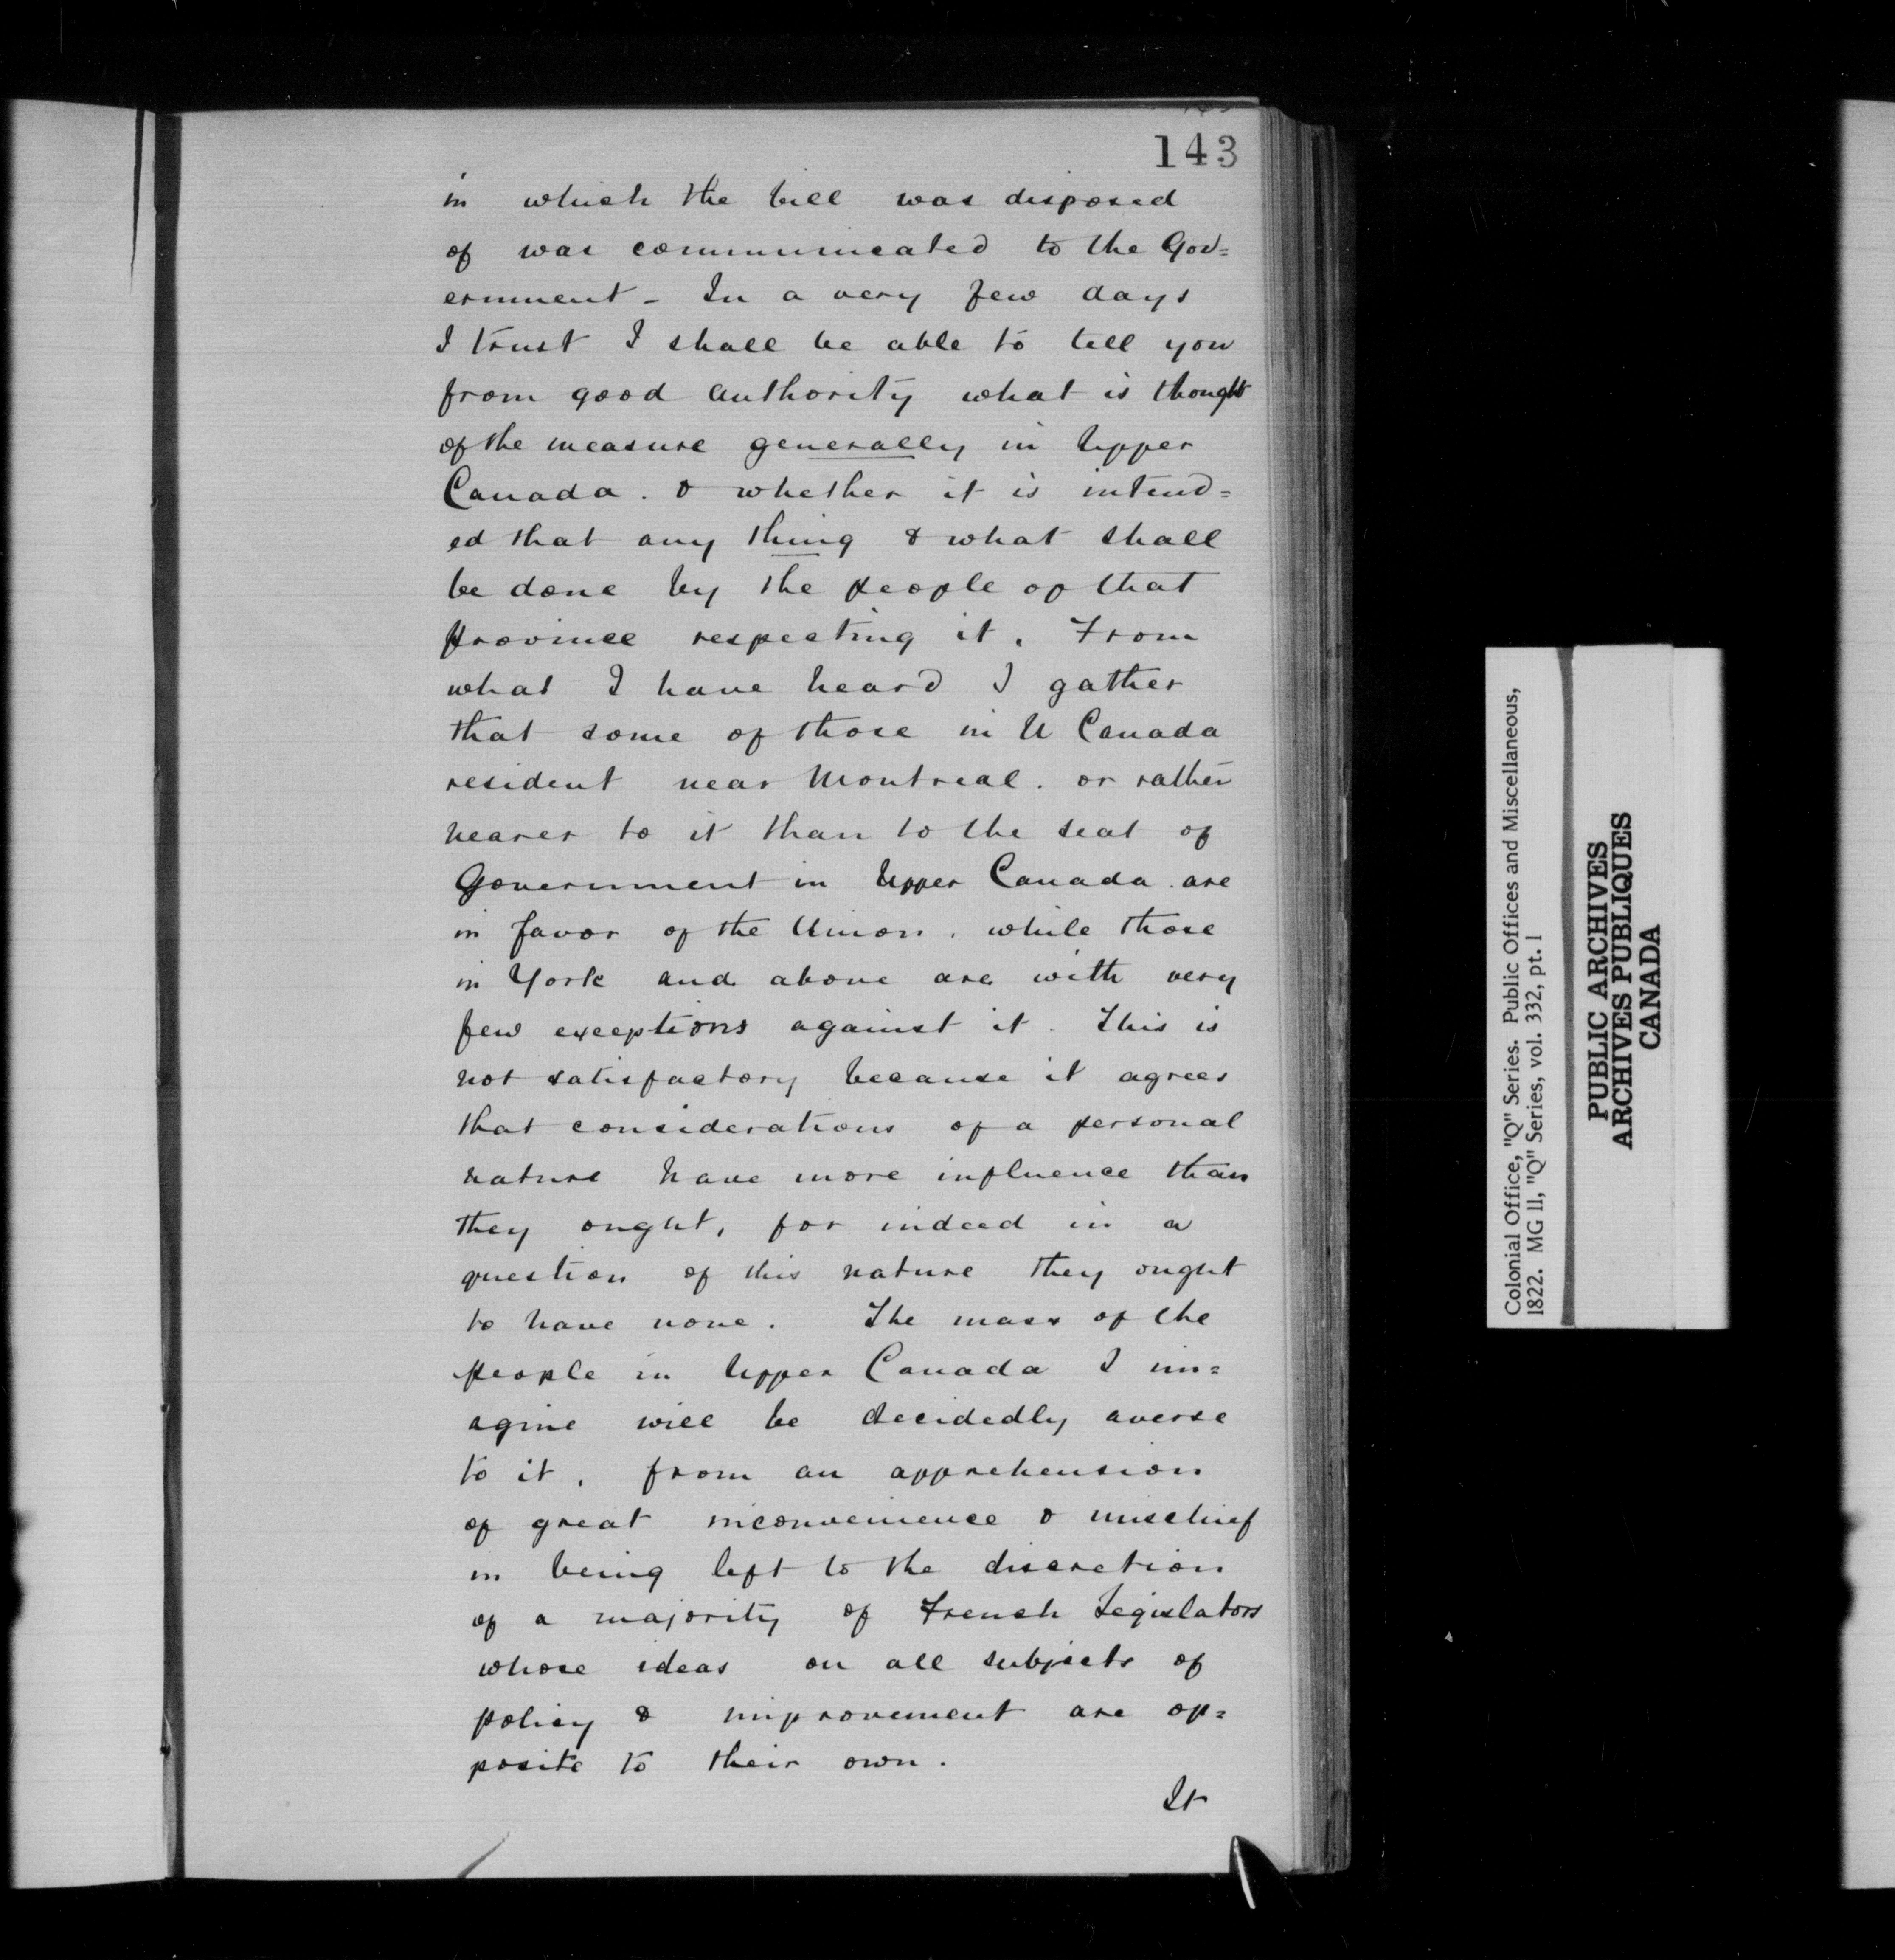 143
in which the bill was disposed
of was communicated to the Gov=
ernment - In a very few days
I trust I shall be able to tell you
from good authority what is thought
of the measure generally in Upper
Canada. & whether it is intend=
ed that any thing & what shall
be done by the people of that
province respecting it. From
what I have heard I gather
that some of those in U Canada
resident near Montreal. or rather
nearer to it than to the seat of
Government in Upper Canada. are
in favor of the Union. while those
in York and above are with very
few exceptions against it. This is
not satisfactory because it agrees
that considerations of a personal
nature have more influence than
they ought, for indeed in a
question of this nature they ought
to have none. The mass of the
people in Upper Canada I im=
agine will be decidedly averse
to it, from an apprehension
of great inconvenience & mischief
in being left to the discretion
of a majority of French Legislators
whose ideas on all subjects of
policy & improvement are op=
posite to their own.
It
Colonial Office, "Q" Series. Public Offices and Miscellaneous,
1822. MG 11, "Q" Series, vol. 332, pt. 1
PUBLIC ARCHIVES
ARCHIVES PUBLIQUES
CANADA